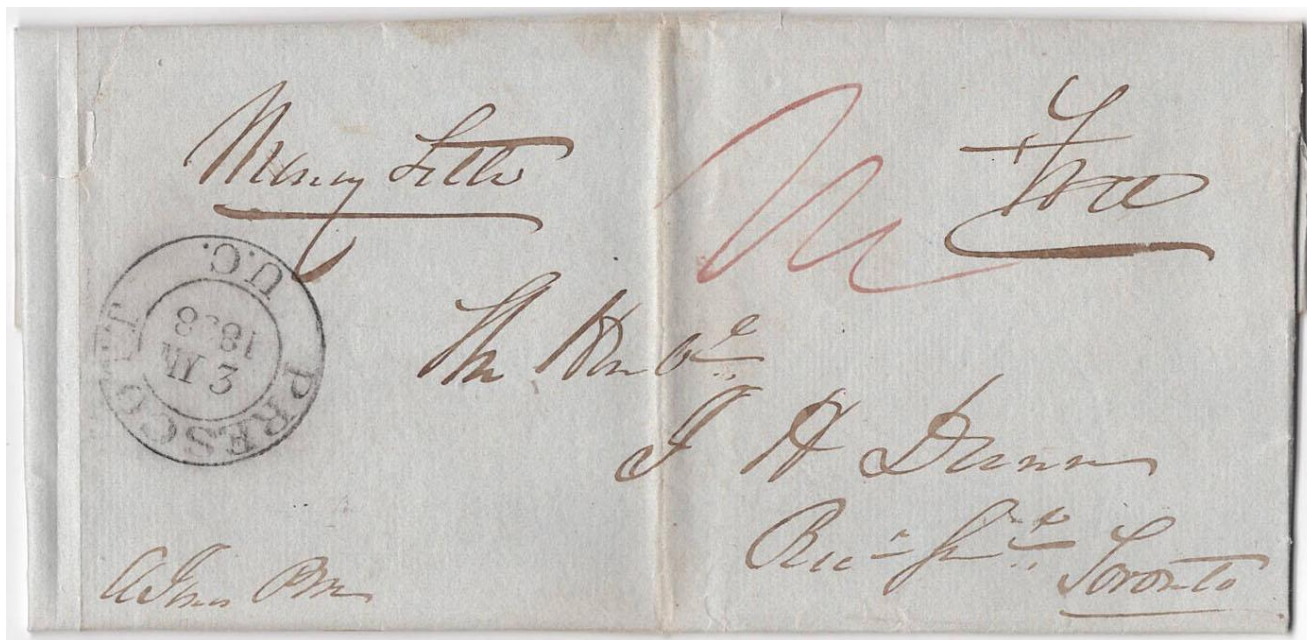 Money Letter
Free
PRESCOTT
U.C.
The Honble
J H Dunn
Recr Genl
Toronto
A Jones PM